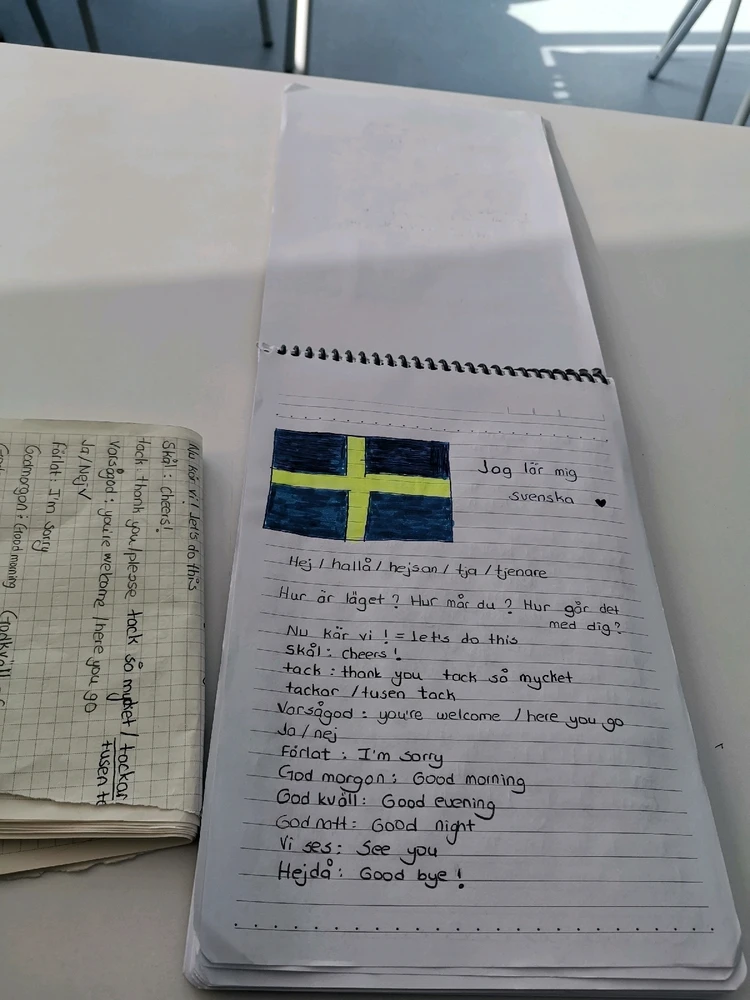 Jag lär mig
svenska ♥
Hej / hallå / hejsan / tja / tjenare
Hur är läget? Hur mår du? Hur går det
med dig?
Nu kör vi! = let's do this
Skål: cheers!
tack: thank you tack så mycket
tackar / tusen tack
Varsågod: you're welcome / here you go
Ja / nej
Förlåt: I'm sorry
God morgon: Good morning
God kväll: Good evening
God natt: Good night
Vi ses: See you
Hejdå: Good bye!
Nu kör vi! let's do this
Skål: cheers!
tack thank you/please tack så mycket / tackar
tusen
Varsågod: you're welcome / here you go
Ja/Nej
Förlåt: I'm sorry
Godmorgon: Good morning
Godkväll